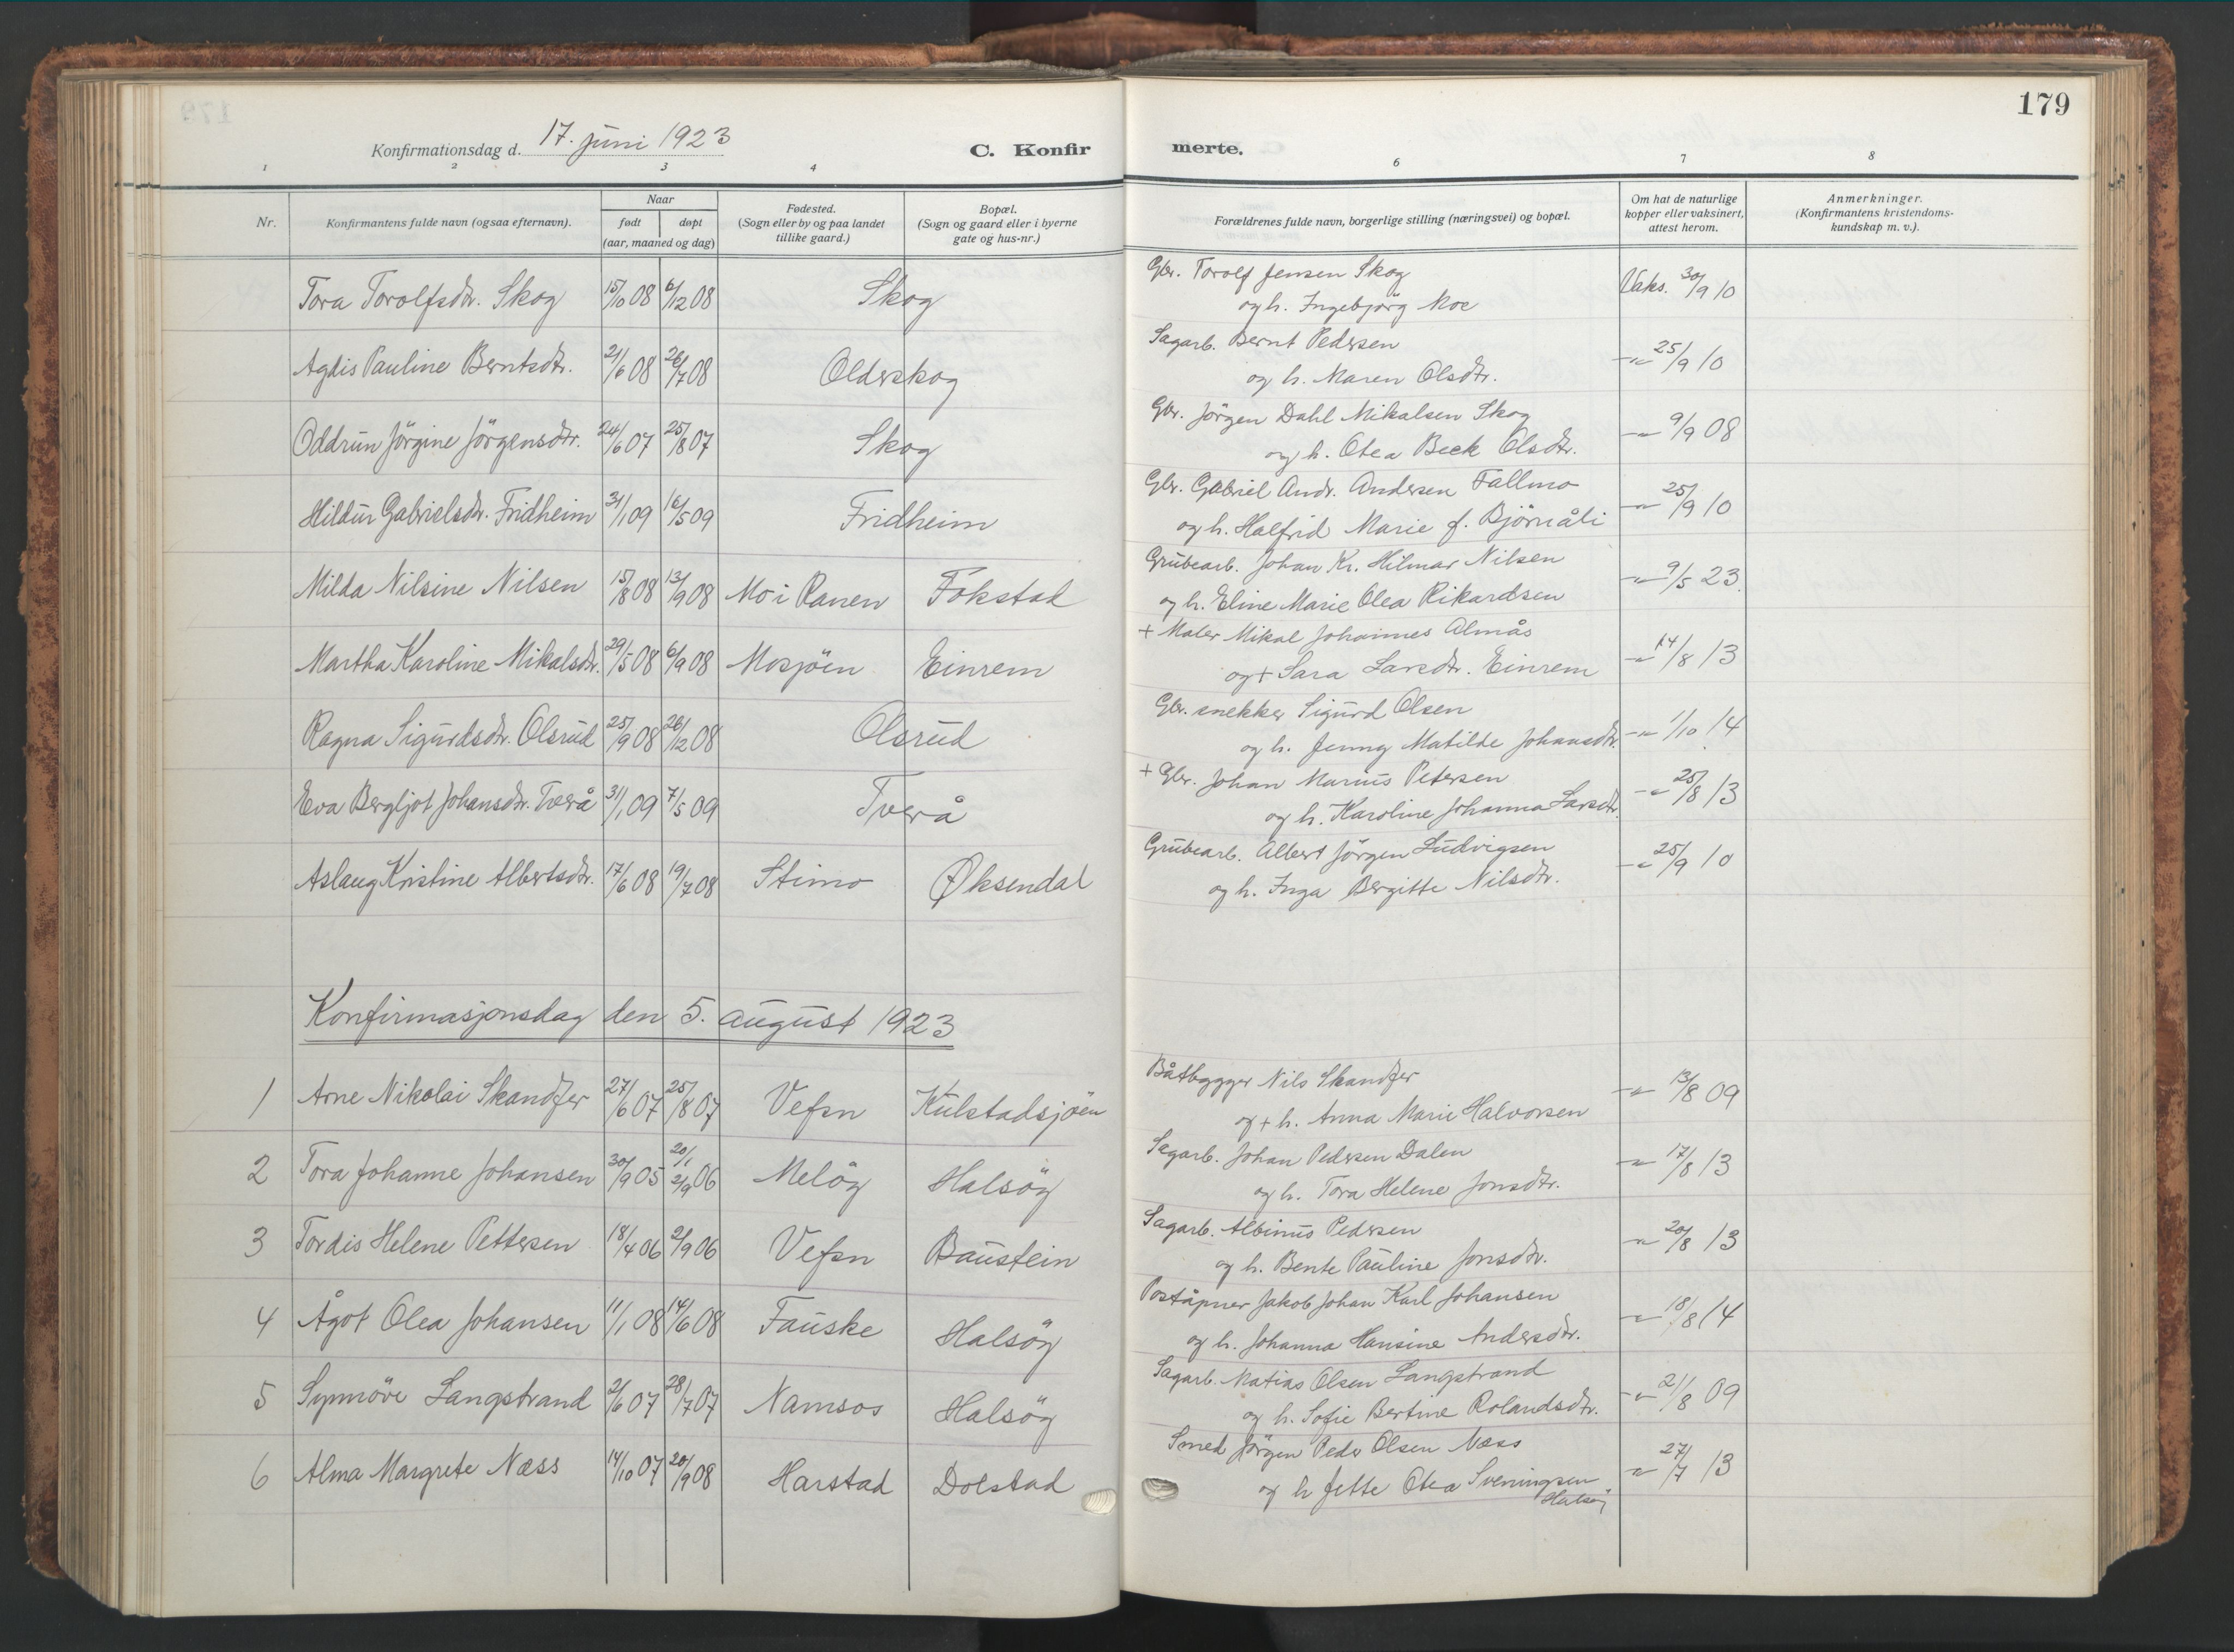 179
Konfirmationsdag d. 17. juni 1923 C. Konfirmerte.
1 2 3 4 6 7 8
Nr. Konfirmantens fulde navn (ogsaa efternavn). Naar født døpt (aar, maaned og dag) Fødested. (Sogn eller by og paa landet tillike gaard.) Bopæl. (Sogn og gaard eller i byerne gate og hus-nr.) Forældrenes fulde navn, borgerlige stilling (næringsvei) og bopæl. Om hat de naturlige kopper eller vaksinert, attest herom. Anmerkninger. (Konfirmantens kristendomskundskap m. v.).
Tora Torolfsdtr. Skog 15/10 08 6/12 08 Skog Gbr. Torolf Jensen Skog
og h. Ingebjörg Moe Vaks. 30/9 10
Agdis Pauline Berntsdtr. 21/6 08 26/7 08 Olderskog Sagarb. Bernt Pedersen
og h. Maren Olsdtr. -"- 25/9 10
Oddrun Jörgine Jörgensdtr. 24/6 07 25/8 07 Skog Gbr. Jörgen Dahl Mikalsen Skog
og h. Otea Beck Olsdtr. -"- 9/9 08
Hildur Gabrielsdtr. Fridheim 31/1 09 16/5 09 Fridheim Gbr. Gabriel Andr. Andersen Fallmo
og h. Halfrid Marie f. Björnåli -"- 25/9 10
Milda Nilsine Nilsen 15/8 08 13/9 08 Mo i Ranen Fokstad Grubearb. Johan Kr. Hilmar Nilsen
og h. Eline Marie Olea Rikardsen -"- 9/5 23.
Martha Karoline Mikalsdtr. 29/5 08 6/9 08 Mosjöen Einrem + Maler Mikal Johannes Almås
og + Sara Larsdtr. Einrem -"- 14/8 13
Ragna Sigurdsdtr. Olsrud 25/9 08 26/12 08 Olsrud Gbr. snekker Sigurd Olsen
og h. Jenny Matilde Johansdtr. -"- 1/10 14
Eva Bergljot Johansdtr. Tverå 31/1 09 7/5 09 Tverå + Gbr. Johan Marius Petersen
og h. Karoline Johanna Larsdtr. -"- 25/8 13
Aslaug Kristine Albertsdtr. 17/6 08 19/7 08 Stimo Øksendal Grubearb. Albert Jörgen Ludvigsen
og h. Inga Bergitte Nilsdtr. -"- 25/9 10
Konfirmasjonsdag den 5. august 1923
1 Arne Nikolai Skandfer 27/6 07 25/8 07 Vefsn Kulstadsjöen Båtbygger Nils Skandfer
og + h. Anna Marie Halvorsen -"- 13/8 09
2 Tora Johanne Johansen 30/9 05 20/1 2/9 06 Melöy Halsöy Sagarb. Johan Pedersen Dalen
og h. Tora Helene Jonsdtr. -"- 17/8 13
3 Tordis Helene Pettersen 18/4 06 2/9 06 Vefsn Baustein Sagarb. Albinus Pedersen
og h. Bente Pauline Jonsdtr. -"- 20/8 13
4 Ågot Olea Johansen 11/1 08 14/6 08 Fauske Halsöy Poståpner Jakob Johan Karl Johansen
og h. Johanna Hansine Andersdtr. -"- 18/8 14
5 Synnöve Langstrand 2/6 07 28/7 07 Namsos Halsöy Sagarb. Matias Olsen Langstrand
og h. Sofie Bertine Rolandsdtr. -"- 21/8 09
6 Alma Margrete Næss 14/10 07 20/9 08 Harstad Dolstad Smed Jörgen Peder Olsen Næss
og h Jette Otea Sveningsen
Halsöy -"- 27/7 13